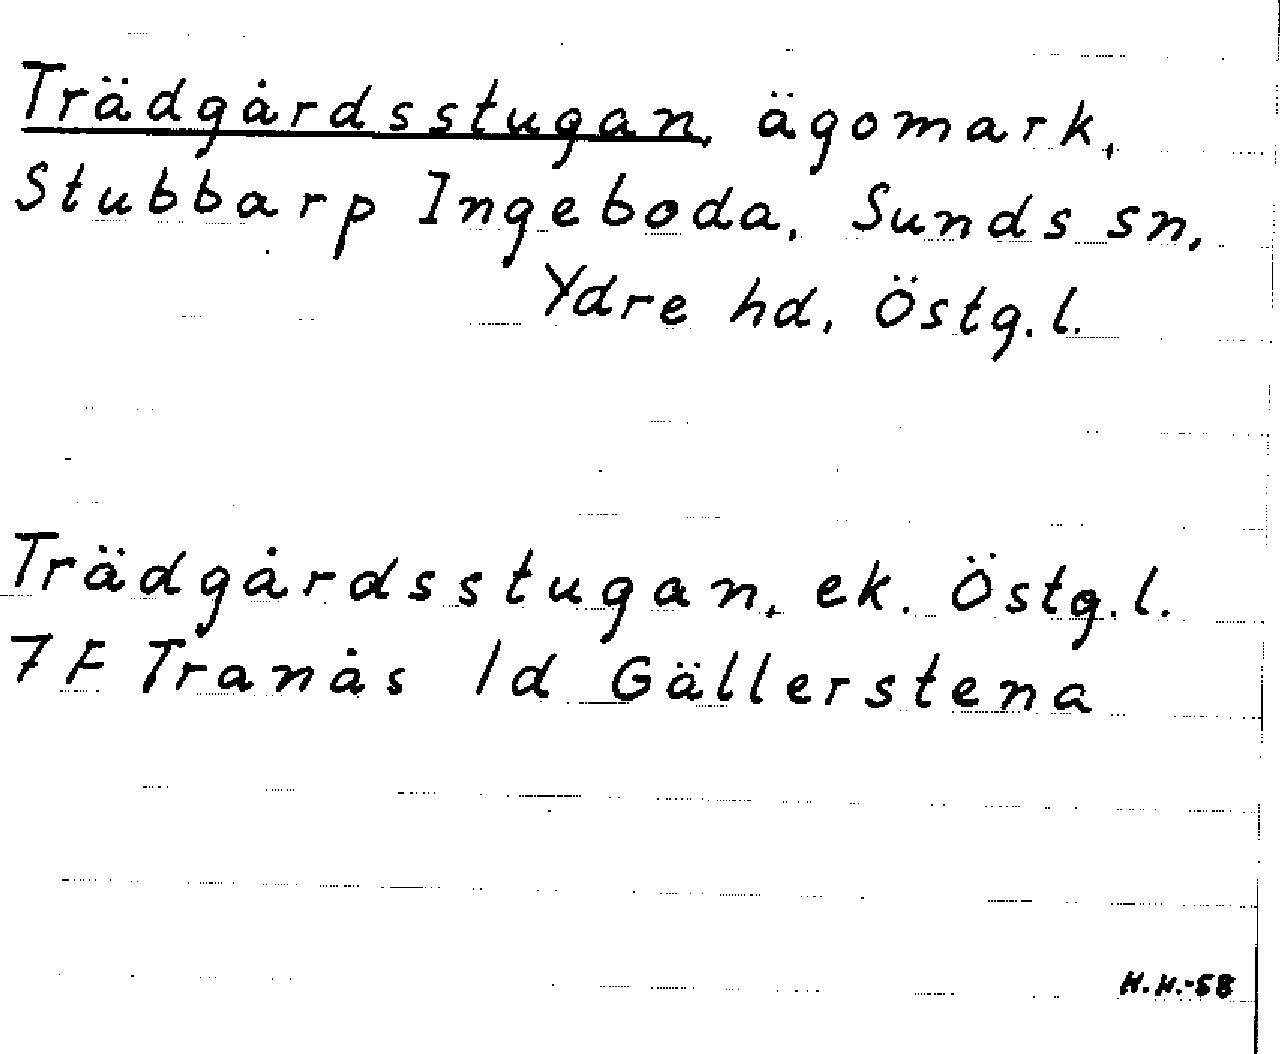 Trädgårdsstugan, ägomark,
Stubbarp Ingeboda, Sunds sn,
Ydre hd, Östg.l.
Trädgårdsstugan, ek. Östg.l.
7F Tranås 1d Gällerstena
H.H.-58